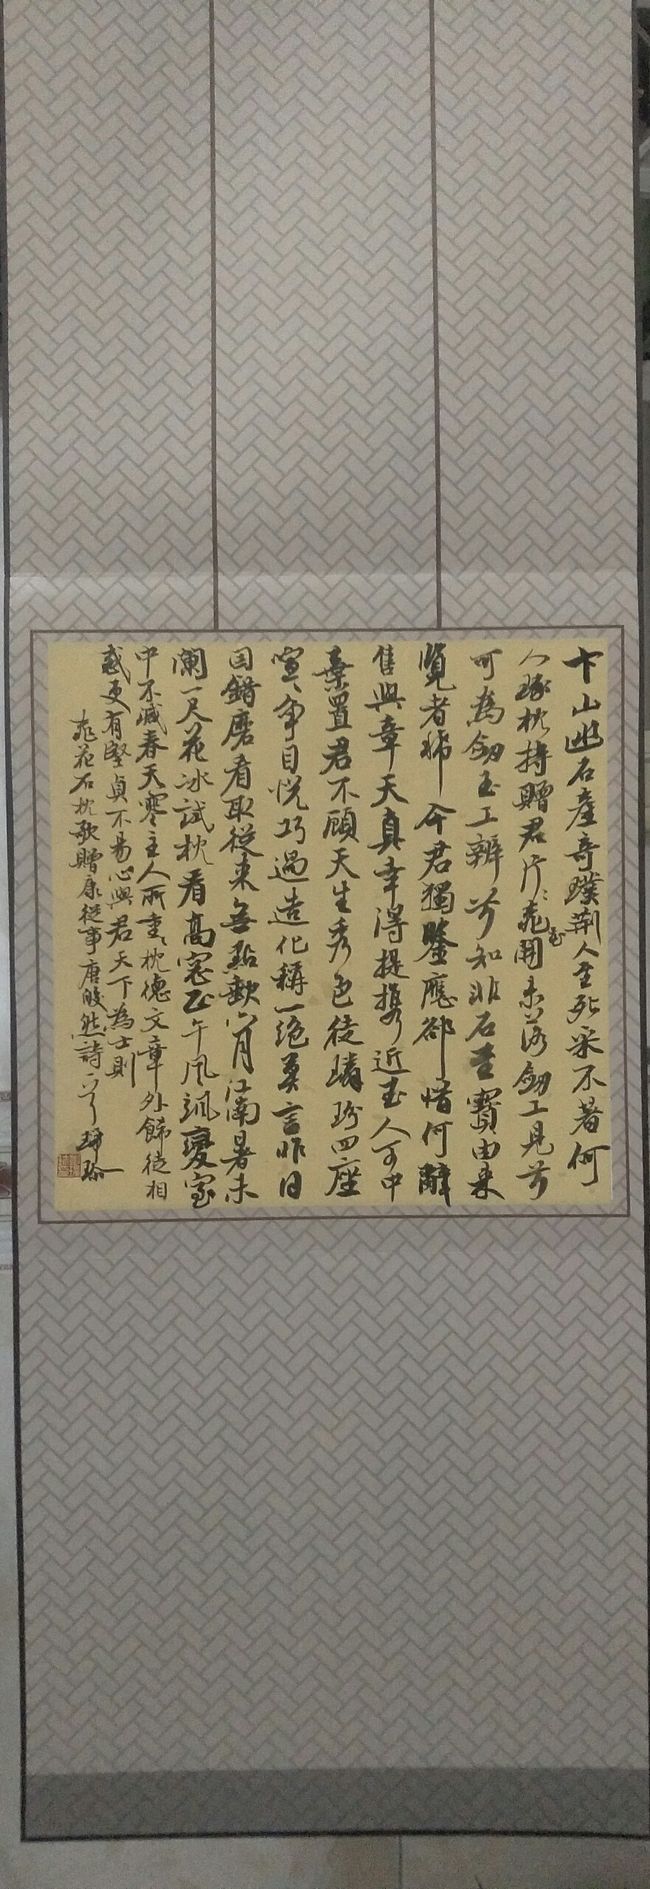 卞山幽石產奇璞荆人至死采不著何
人琢枕持贈君片〻桃開未落劍工見芳
可為劍玉工辨芳知非石至寶由來
覽者稀今君獨鑒應卻惜何辭
售與章天真幸得提携近玉人可中
棄置君不顧天生秀色徒璘玢四座
喧〻爭目悅巧過造化稱一絕莫言昨日
因錯磨看取從來無點缺六月江南暑未
闌一尺花冰試枕看高窓正午風颯變室
中不減春天寒主人所重〻枕德文章外飾徒相
惑更有堅貞不易心與君天下為士則
花石枕歌贈康從事唐皎然詩